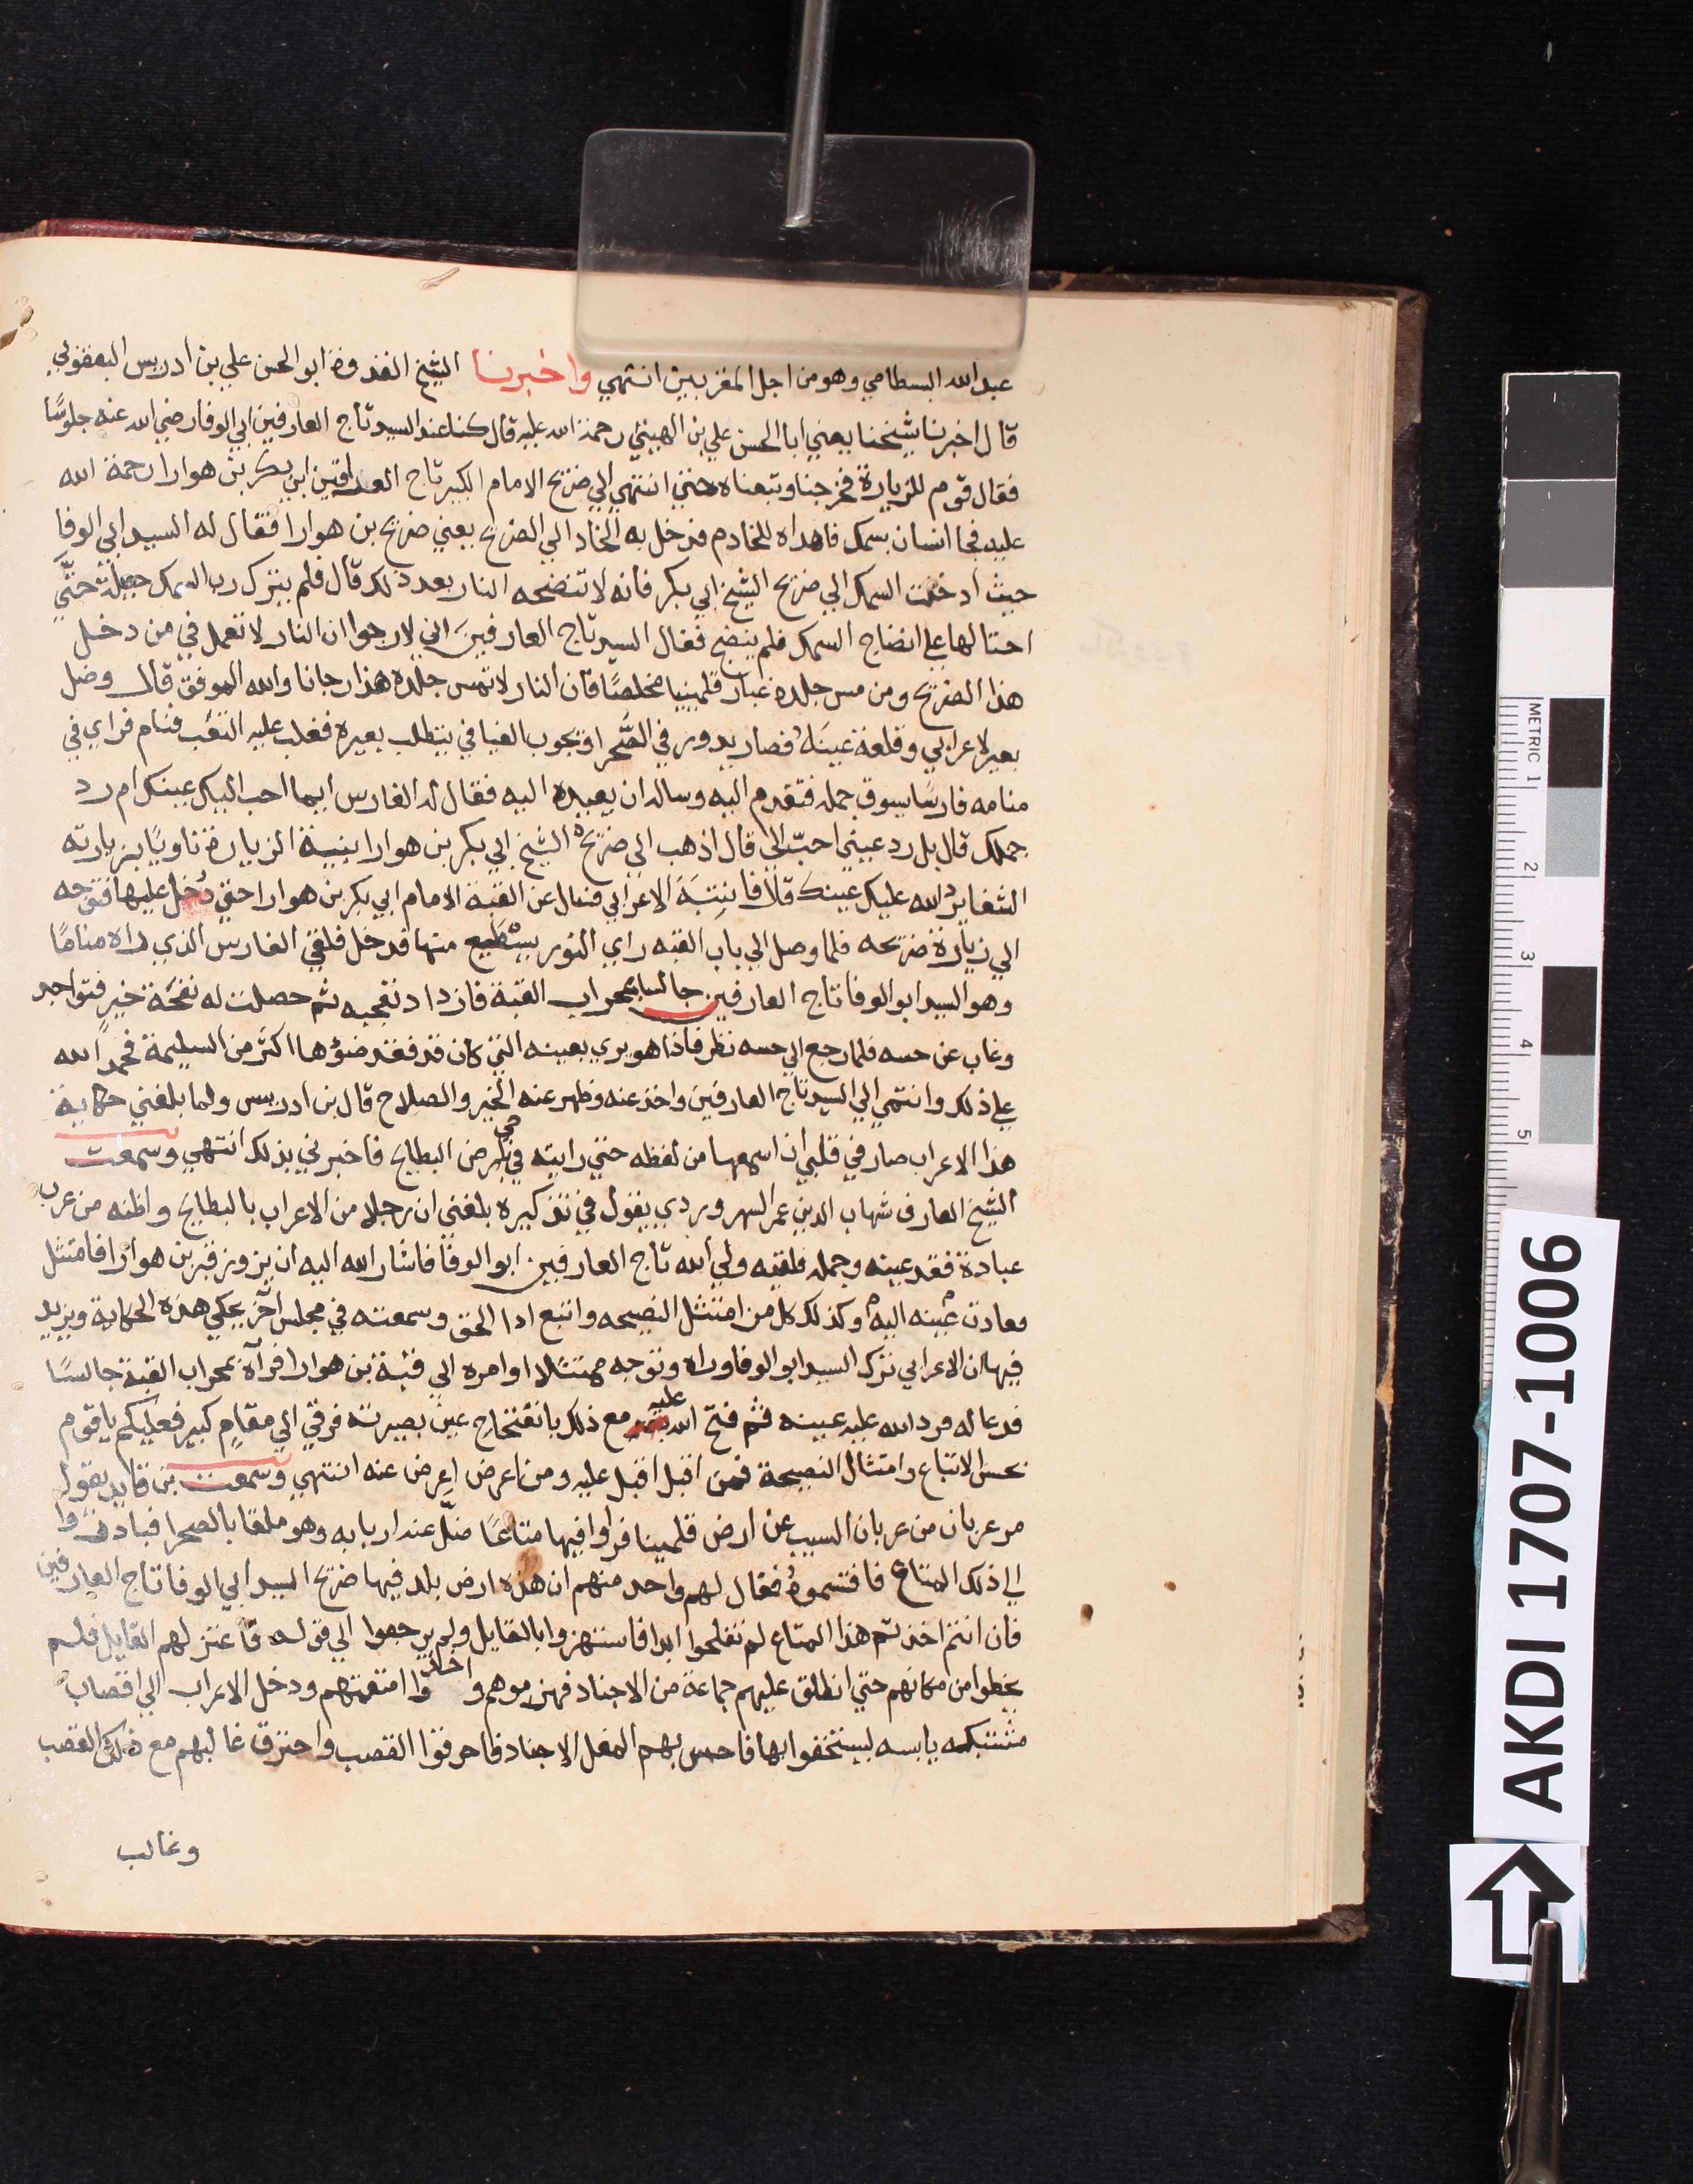 عبد الله البسطامي وهو من اجل المغربيين انتهي واخبرنا الشيخ القدوة ابو الحسن علي بن ادريس اليعقوبي
قال اخبرنا شيخنا يعني ابا الحسن علي بن الهيتي رحمة الله عليه قال كنا عند السيد تاج العارفين ابي الوفا رضي الله عنه جلوسًا
فقال قوم للزيارة فخرجنا وتبعناه حتي انتهي الي ضريح الامام الكبير تاج العارفين ابن بكر بن هوارا رحمة الله
عليه فجا انسان بسمك فاهداه للخادم فدخل به الخاد الي الضريح يعني ضريح بن هوارا فقال له السيد ابي الوفا
حيث ادخلت السمك الي ضريح الشيخ ابي بكر فانه لا تنضجه النار بعد ذلك قال فلم يترك رب السمك حيلة حتي
احتالها علي انضاج السمك فلم ينضج فقال السيد تاج العارفين اني لارجوا ان النار لا تعمل في من دخل
هذا الضريح ومن مس جلده غبار مخلصًا فان النار لا تمس جلده هذا رجانا والله الموفق قال وضل
بعير لاعرابي وقلعة عينه فصار يدور في الصحرا ويجوب الفيافي يتطلب بعيره فغلب عليه التعب فنام فراي في
منامه فارسًا يسوق جمله فتقدم اليه وساله ان يعيده اليه فقال له الفارس ايما احب اليك عينك ام رد
جملك قال بل رد عيني احبّ الي قال اذهب الي ضريح الشيخ ابي بكر بن هوارا بنية الزيارة ناويًا بزيارته
الشفا يرد الله عليك عينك قال فانتبه الاعرابي فسال عن القبة الامام ابي بكر بن هوارا حتي دخل عليها فتوجه
الي زيارة ضريحه فلما وصل الي باب القبه راي النور يسطع منها فدخل فلقي الفارس الذي راه منامًا
وهو السيد ابو الوفا تاج العارفين جالسا بمحراب القبة فازداد تعجبه ثم حصلت له نفحة خير فتواجد
وغاب عن حسه فلما رجع الي حسه نظر فاذا هو يري بعينه التي كان قد فقد ضوؤها اكثر من السليمة فحمد الله
علي ذلك وانتمي الي السيد تاج العارفين واخذ عنه وظهر عنه الخير والصلاح قال بن ادريس ولما بلغني حكاية
هذا الاعراب صار في قلبي ان اسمعها من لفظه حتي رايته في ارض البطايح فاخبرني بذلك انتهي وسمعت
الشيخ العارف شهاب الدين عمر السهروردي يقول في تذكيره بلغني ان رجلا من الاعراب بالبطايح واظنه من عرب
عبادة فقد عينه وجمله فلقيه ولي الله تاج العارفين ابو الوفا فاشار الله اليه ان يزور قبر بن هوارا فامتثل
فعادت عينه اليه وكذلك كل من امتثل النصيحه واتبع ادا الحق وسمعته في مجلس آخر يحكي هذه الحكاية ويزيد
فيها ان الاعرابي ترك السيد ابو الوفا وراه وتوجه ممتثلا اوامره الي قبة بن هوارا فرآه بمحراب القبة جالسًا
فدعا له فرد الله عليه عينه ثم فتح الله عليه مع ذلك بانفتاح عين بصيرته فرقي الي مقامٍ كبير فعليكم يا قوم
بحسن الاتباع وامتثال النصيحة فمن اقبل اقبل عليه ومن اعرض اعرض عنه انتهي وسمعت بن قايد يقول
مر عربان من عربان السيب عن ارض قلمينا فراوا فيها متاعًا ضلّ عند اربابه وهو ملقا بالصحرا فبادروا
الي ذلك المتاع فاقتسموه فقال لهم واحد منهم ان هذه ارض بلد فيها ضريح السيد ابي الوفا تاج العارفين
فان انتم اخذتم هذا المتاع لم تفلحوا ابدا فاستهزوا بالقايل ولم يرجعوا الي قوله فاعتزلهم القايل فلم
يخطوا من مكانهم حتي انطلق عليهم جماعة من الاجناد فهزموهم واخذوا امتعتهم ودخل الاعراب الي اقصاب
مشتبكه يابسه ليستخفوا بها فاحس بهم المغل الاجناد فاحرقوا القصب واحترق غالبهم مع ذلك القصب
وغالب
AKDI 1707-1006
METRIC 1 2 3 4 5